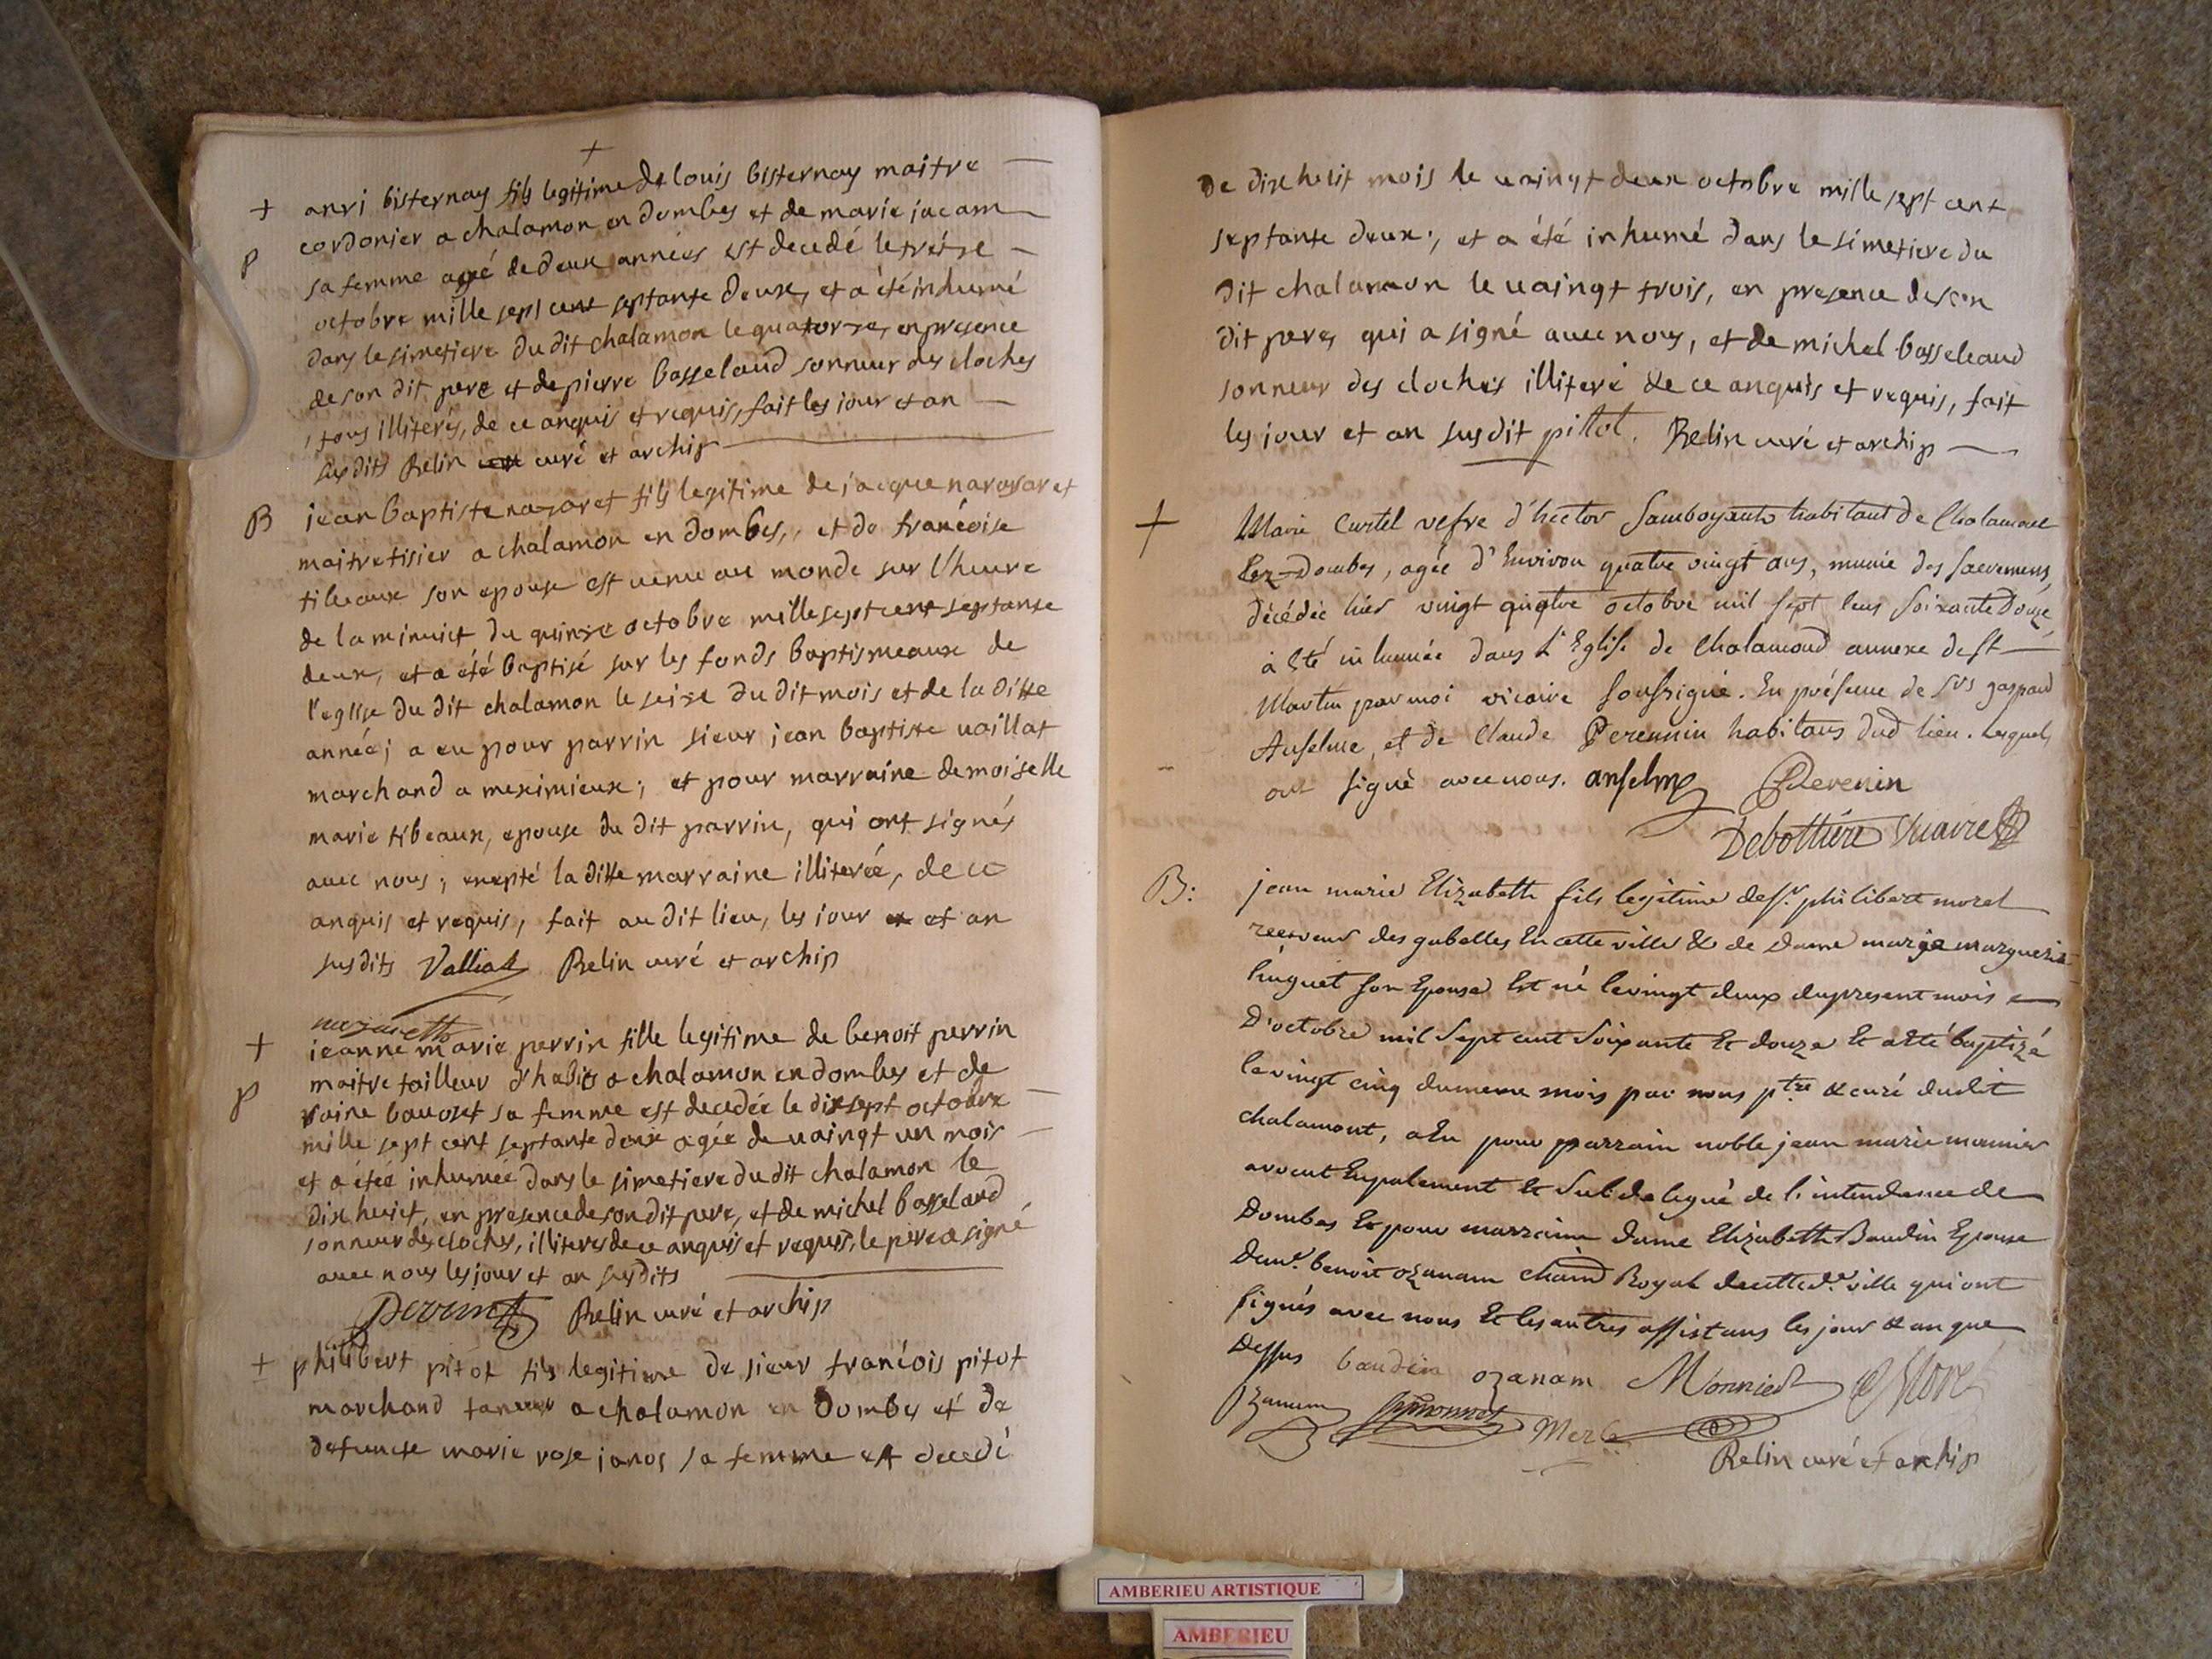 +
+ anri bisternay fils legitime de louis bisternay maitre
cordonier a chalamon en dombes et de marie jacam
p
sa femme agé de deux années est decedé le trése
octobre mille sept cent septante deux, et a été inhumé
dans le simetiere du dit chalamon le quatorse, en presence
de son dit pere et de pierre basseland sonneur des cloches
, tous illiterés, de ce anquis et requis, fait les jour et an
susdits Relin curé et archip
B jean baptiste nazaret fils legitime de jacque
maitre tisier a chalamon en dombes,, et de francoise
tibeaux son epouse est venu au monde sur l'heure
de la minuict du quinse octobre mille sept cent septante
deux, et a été baptisé sur les fonds baptismeaux de
l'eglise du dit chalamon le seise du dit mois et de la ditte
année; a eu pour parrin sieur jean baptiste vaillat
marchand a meximieux; et pour marraine demoiselle
marie tibeaux, epouse du dit parrin, qui ont signés
avec nous; exepté la ditte marraine illiterée, de ce
anquis et requis, fait au dit lieu, les jour et an
susdits Valliat Relin curé et archip
+ jeanne marie perrin fille legitime de benoit perrin
maitre tailleur d'habits a chalamon en dombes et de
p
raine bauoset sa femme est decedée le dixsept octobre
mille sept cent septante deux agée de vaingt un mois
et a étéé inhumée dans le simetiere du dit chalamon le
dix huict, en presence de son dit pere, et de michel basseland
sonneur des cloches, illiteres de ce anquis et requis, le pere a signé
avec nous les jour et an susdits
Perrin Relin curé et archip
+ philibert pitot fils legitime de sieur francois pitot
marchand taneur a chalamon en Dombes et de
defuncte marie rose janos sa femme est decedé
de dix huit mois le vaingt deux octobre mille sept cent
septante deux; et a été inhumé dans le simetiere du
dit chalamon le vaingt trois, en presence de son
dit pere, qui a signé avec nous, et de michel basseleand
sonneur des cloches illiteré de ce anquis et requis, fait
les jour et an susdit pittot. Relin curé et archip
+ Marie Curtel vefve d'hector habitant de Chalamont
Lez-Dombes, agée d'Environ quatre vingt ans, munie des sacremens,
décédée hier vingt quatre octobre mil sept cens soixante douze,
à été inhumée dans L'Eglise de Chalamond annexe de St
Martin par moi vicaire soussigné. En présence de Srs gaspard
Anselme, et de Claude Perennin habitans dud lieu. Lesquels
ont signé avec nous. anselme Perenin
Debottiere vicaire
B: jean marie Elizabeth fils legitime de sr. philibert morel
receveur des gabelles En cette ville & de Dame marie marguerite
huguet son Epouse Est né le vingt deux du present mois
D'octobre mil Sept cent Soixante Et douze Et a Eté baptizé
le vingt cinq du meme mois par nous ptre & curé dudit
chalamont, a Eu pour parrain noble jean marie monnier
avocat En parlement Et Subdelegué de l'intendance de
Dombes Et pour marraine dame Elizabeth Baudin Epouse
De mr. benoit ozanam Royal de cette de. ville qui ont
signés avec nous Et les autres assistans les jour & an que
Dessus baudin ozanam Monnier Morel
ozanam Merle
Relin curé et archip
AMBERIEU ARTISTIQUE
AMBERIEU